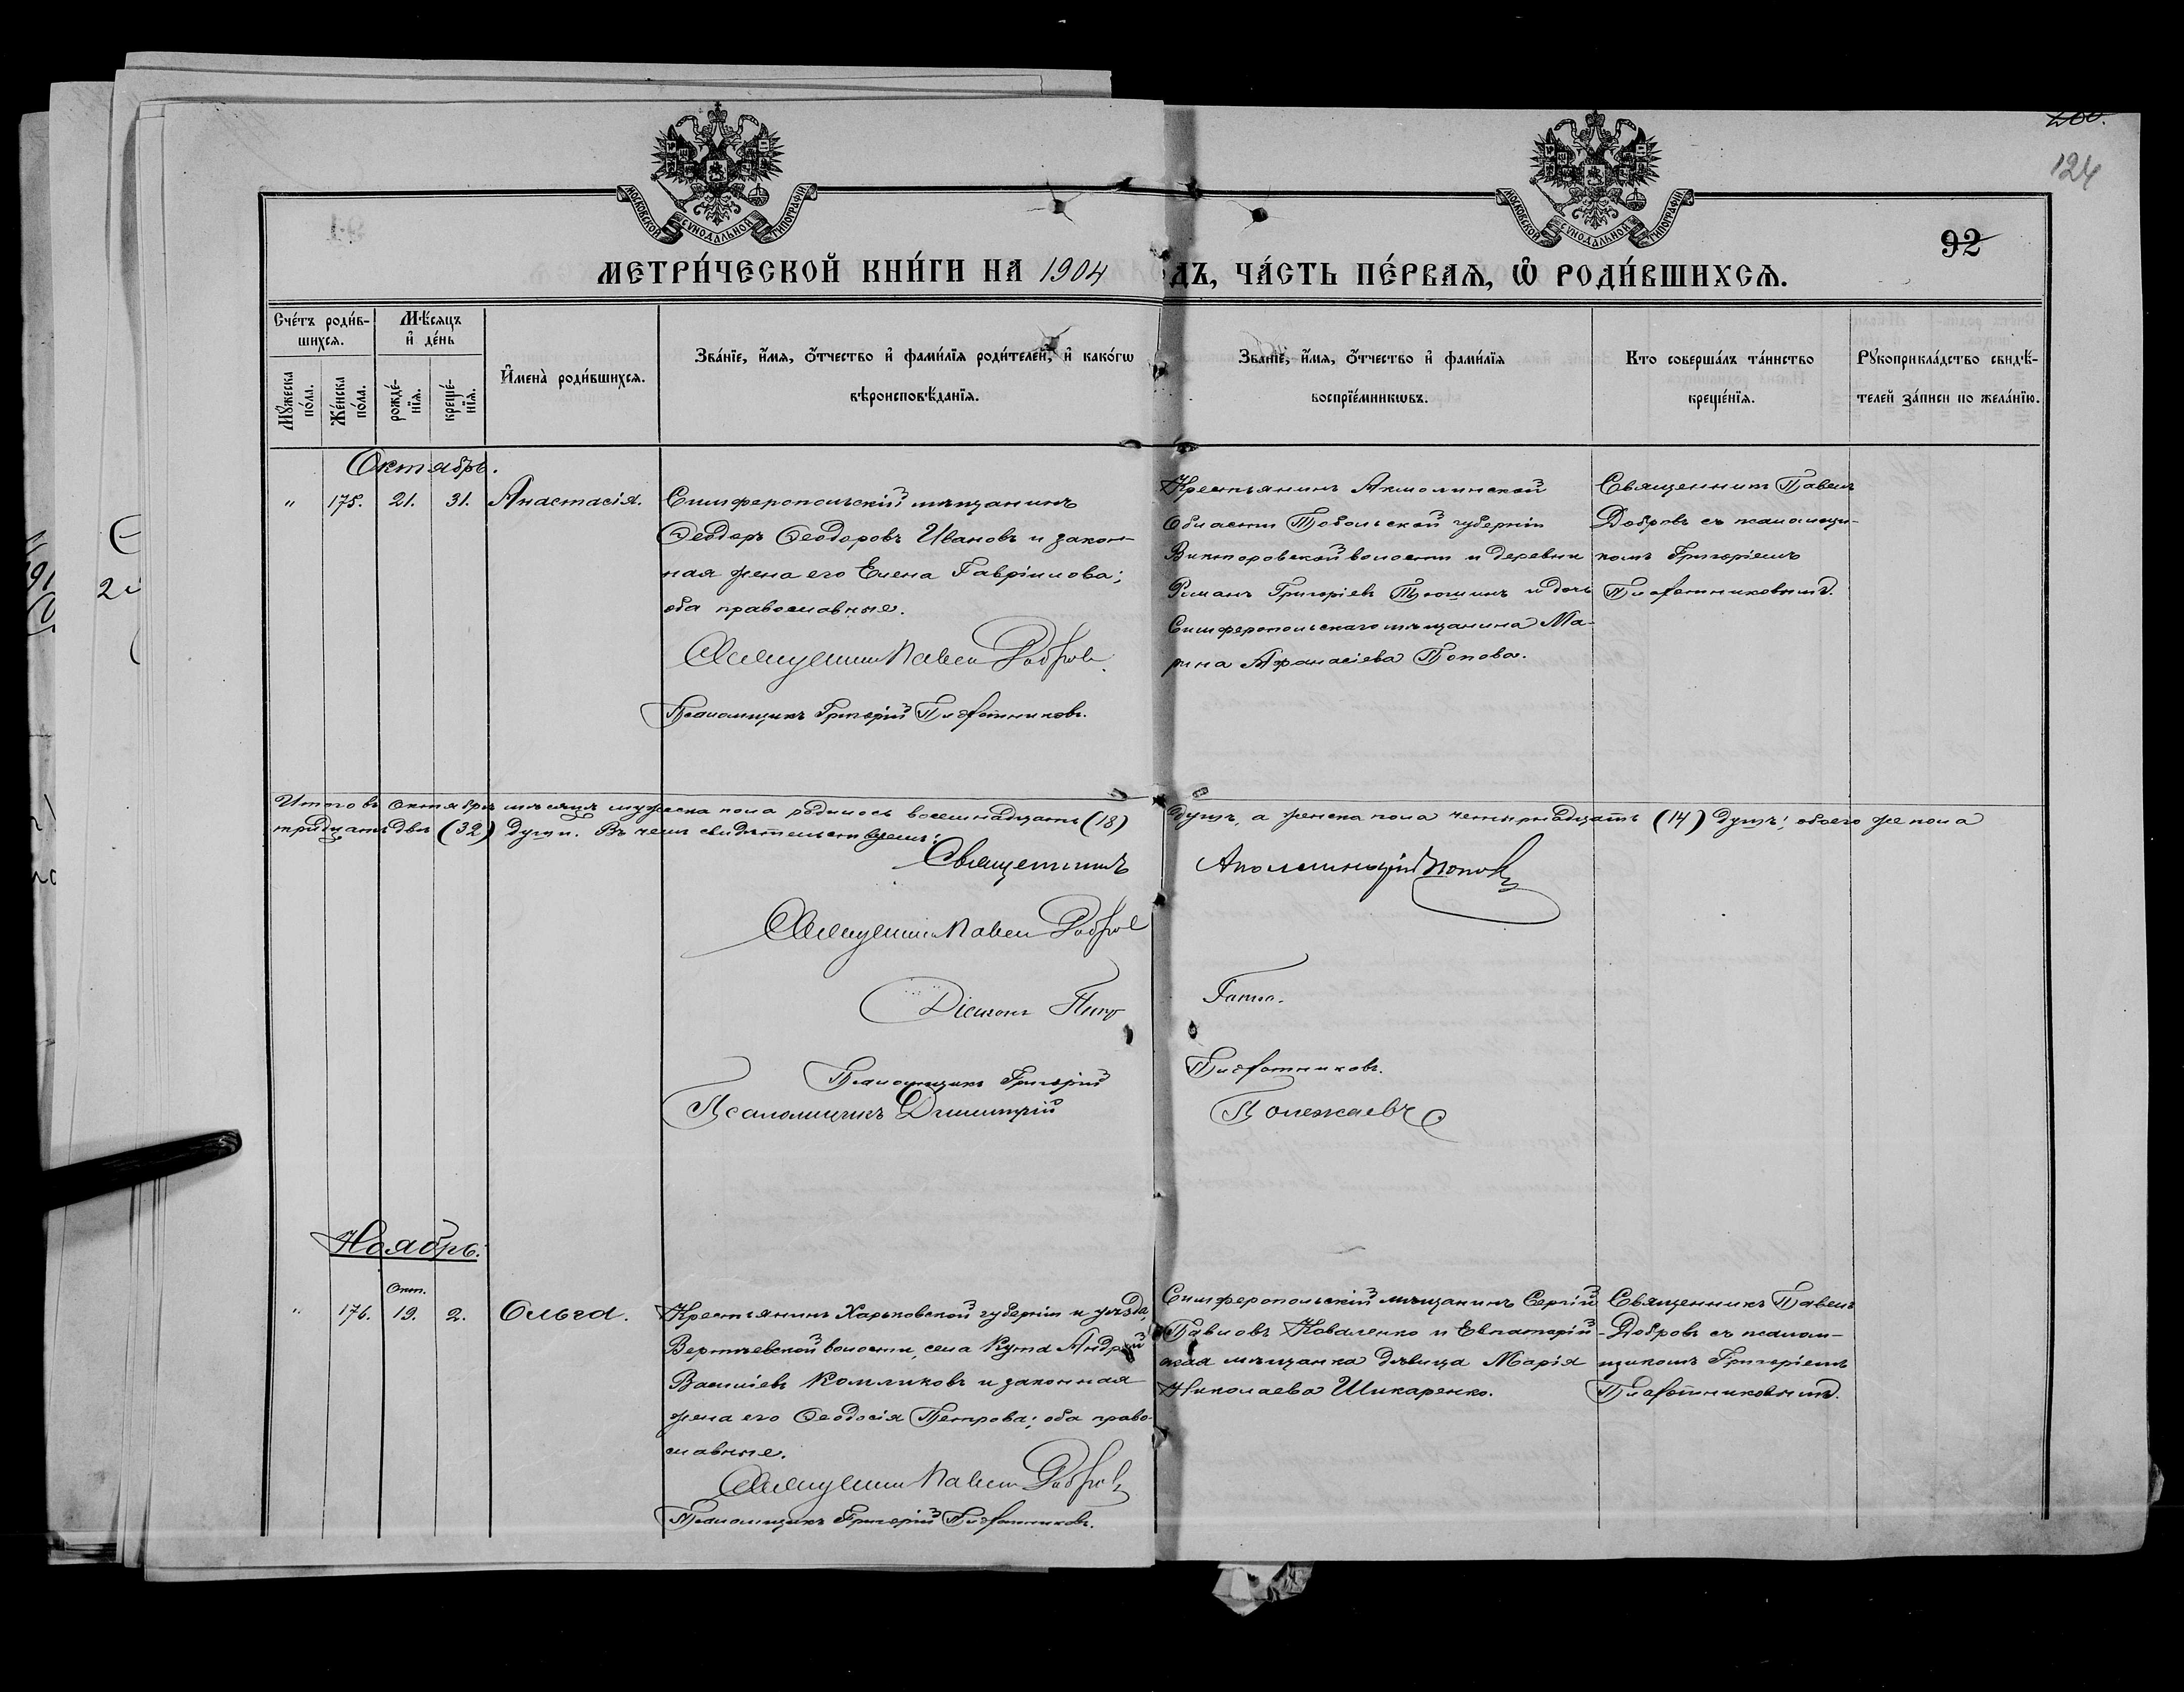 МОСКОВСКОЙ СУНОДАЛЬНОЙ ТИПОГРАФІИ
МОСКОВСКОЙ СУНОДАЛЬНОЙ ТИПОГРАФІИ
124
92
МЕТРИ́ЧЕСКОЙ КНИ́ГИ НА 1904
ДЪ, ЧА́СТЬ ПЕ́РВАѦ, Ѡ҆ РОДИ́ВШИХСѦ.
Сче́тъ роди́в-
шихсѧ.
Мѣ́сѧцъ
и҆ де́нь
Мꙋ́жеска
по́ла.
Же́нска
по́ла.
рожде́-
нїѧ.
креще́-
нїѧ.
И҆мена̀ роди́вшихсѧ.
Зва́нїе, и҆́мѧ, ѻ҆́тчество и҆ фами́лїѧ роди́телей, и҆ како́гѡ
вѣроисповѣ́данїѧ.
Зва́нїе, и҆́мѧ, ѻ҆́тчество и҆ фами́лїѧ
воспрїе́мникѡвъ.
Кто соверша́лъ та́инство
креще́нїѧ.
Рꙋкоприкла́дство свидѣ́-
телей за́писи по жела́нїю.
Октябрь.
" 175. 21. 31. Анастасія.
Симферопольскій мѣщанинъ
Ѳеодоръ Ѳеодоровъ Ивановъ и закон-
ная жена его Елена Гавріилова;
оба православные.
Священникъ Павелъ Добровъ
Псаломщикъ Григорій Плафотниковъ.
Крестьянинъ Акмолинской
области Тобольской губерніи
Викторовской волости и деревни
Романъ Григоріевъ Тюшинъ и дочь
Симферопольскаго мѣщанина Ма-
рина Афанасіева Попова.
Священникъ Павелъ
Добровъ съ псаломщи-
комъ Григоріемъ
Плафотниковымъ.
Итого въ октябрѣ мѣсяцѣ мужеска пола родилось восемнадцать (18) душъ, а женска пола четырнадцать (14) душъ; обоего же пола
тридцать двѣ (32) души. Въ чемъ свидѣтельствуемъ:
Священникъ Аполлинарій Поповъ
Священникъ Павелъ Добровъ
Діаконъ Петр
Псаломщикъ Григорій Плафотниковъ.
Псаломщикъ Димитрій Полежаевъ
Ноябрь.
Окт.
" 176. 19. 2. Ольга.
Крестьянинъ Харьковской губерніи и уѣзда,
Вертѣевской волости, села Кута Андрей
Васильевъ Комликовъ и законная
жена его Ѳеодосія Петрова; оба право-
славные.
Священникъ Павелъ Добровъ
Псаломщикъ Григорій Плафотниковъ.
Симферопольскій мѣщанинъ Сергій
Павловъ Коваленко и Евпаторій-
ская мѣщанка дѣвица Марія
Николаева Шикаренко.
Священникъ Павелъ
Добровъ съ псалом-
щикомъ Григоріемъ
Плафотниковымъ.